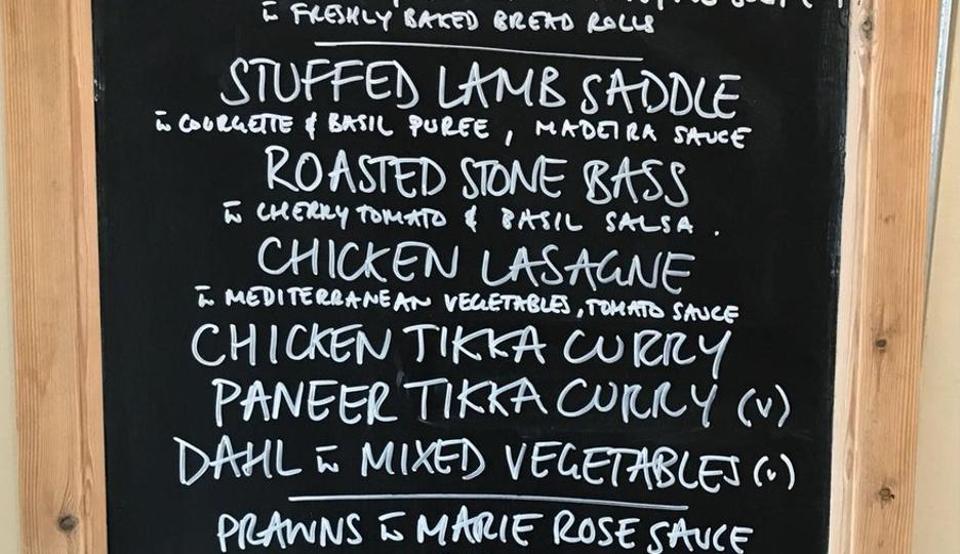 w̄ FRESHLY BAKED BREAD ROLLS
STUFFED LAMB SADDLE
w̄ COURGETTE & BASIL PUREE, MADEIRA SAUCE
ROASTED STONE BASS
w̄ CHERRY TOMATO & BASIL SALSA.
CHICKEN LASAGNE
w̄ MEDITERRANEAN VEGETABLES, TOMATO SAUCE
CHICKEN TIKKA CURRY
PANEER TIKKA CURRY (V)
DAHL w̄ MIXED VEGETABLES (V)
PRAWNS w̄ MARIE ROSE SAUCE